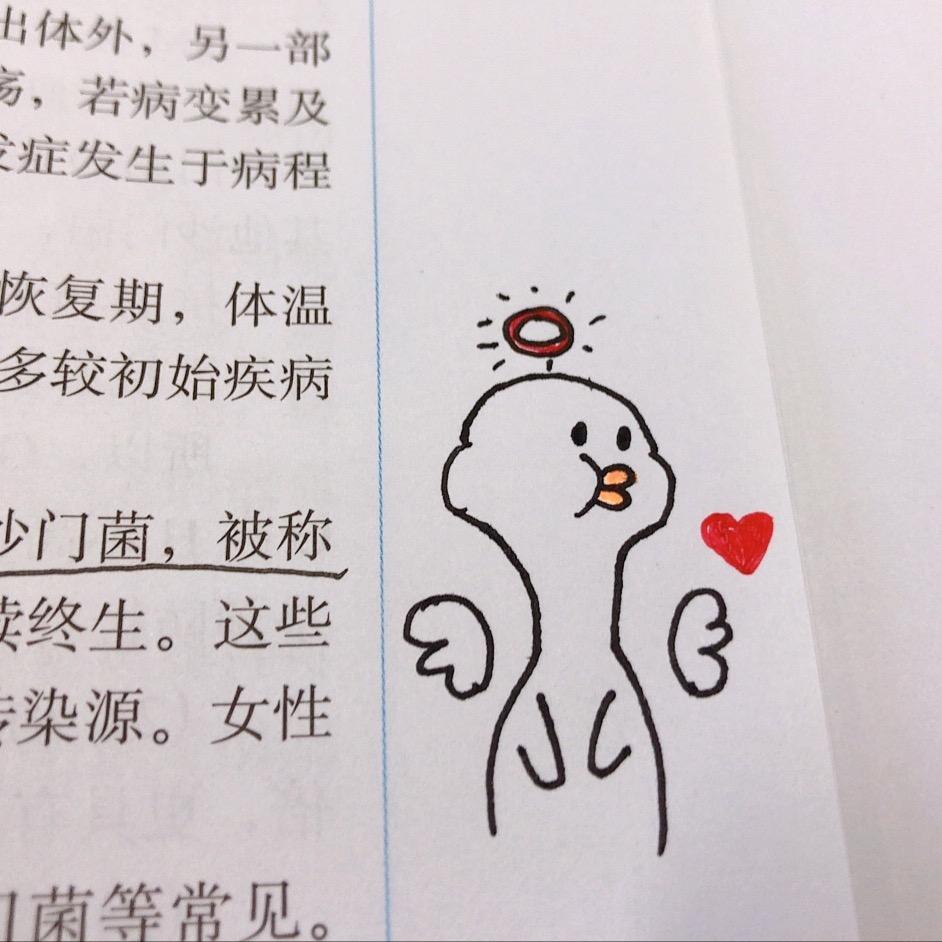 出体外，另一部
疡，若病变累及
发症发生于病程
恢复期，体温
多较初始疾病
沙门菌，被称
续终生。这些
传染源。女性
门菌等常见。